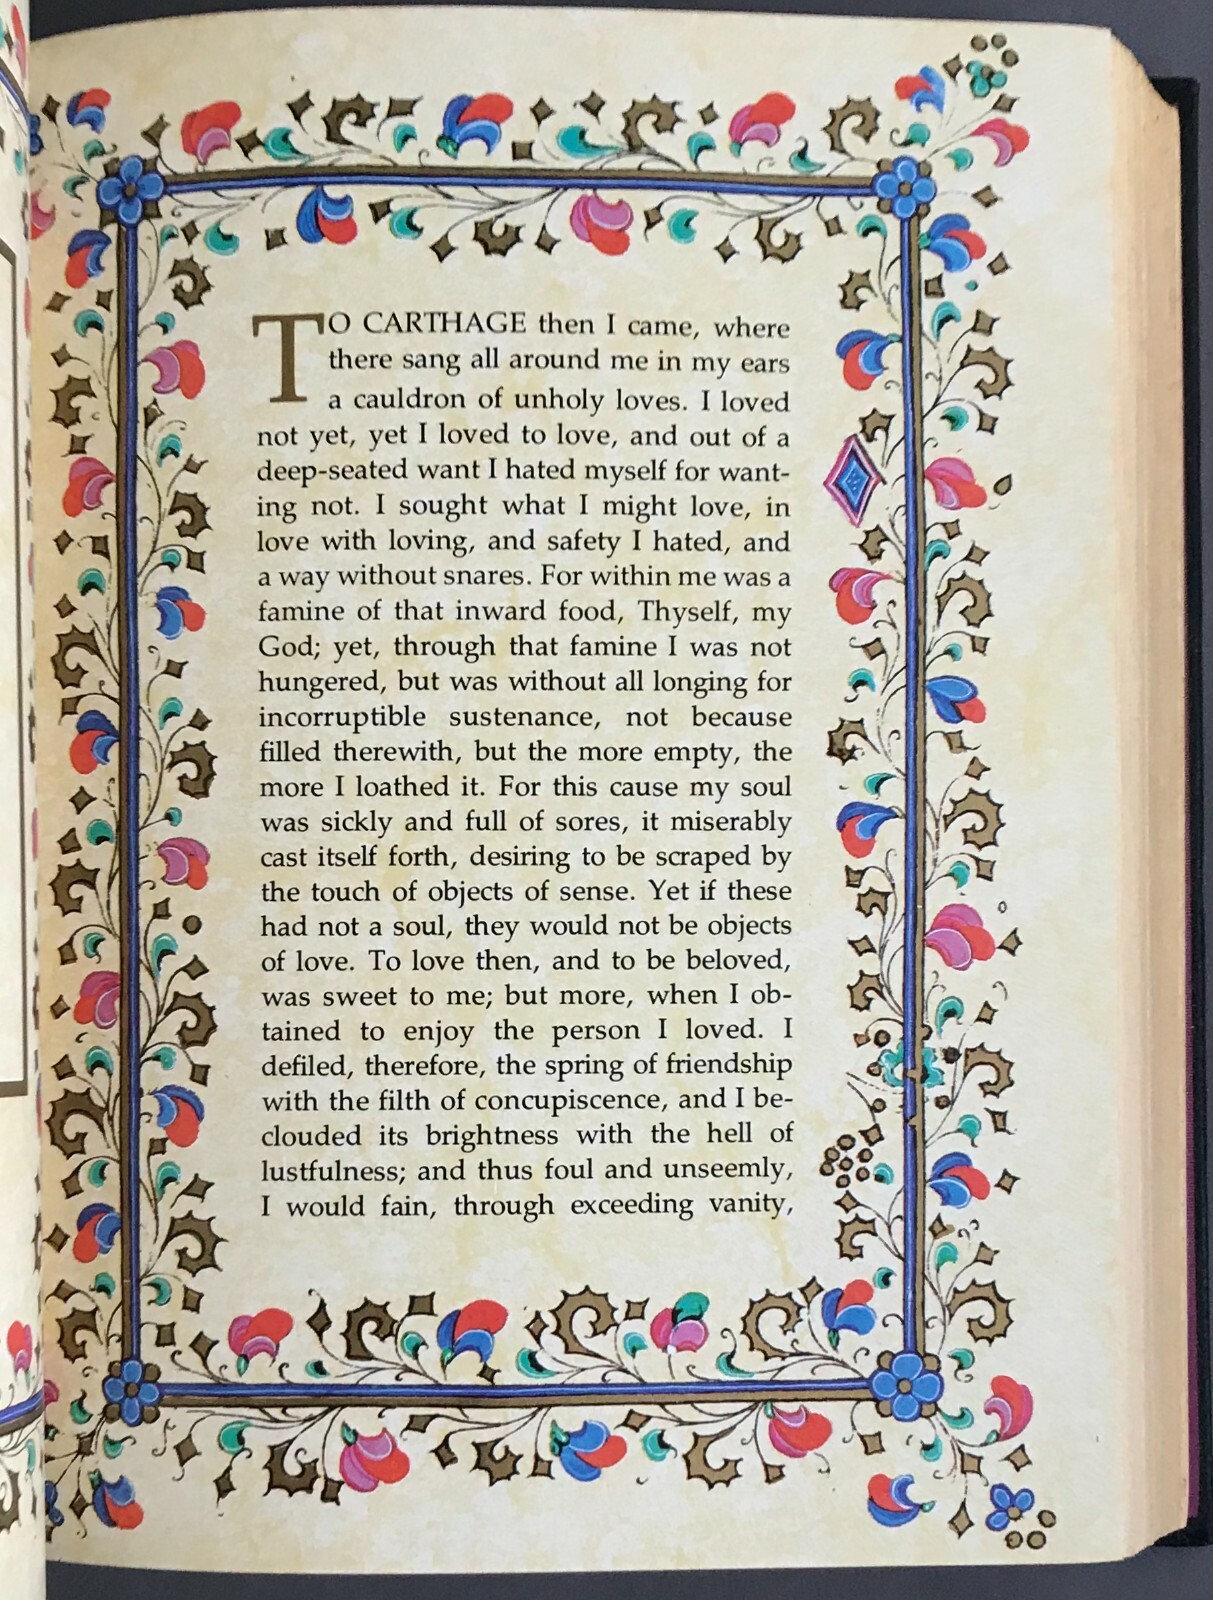 TO CARTHAGE then I came, where
there sang all around me in my ears
a cauldron of unholy loves. I loved
not yet, yet I loved to love, and out of a
deep-seated want I hated myself for want-
ing not. I sought what I might love, in
love with loving, and safety I hated, and
a way without snares. For within me was a
famine of that inward food, Thyself, my
God; yet, through that famine I was not
hungered, but was without all longing for
incorruptible sustenance, not because
filled therewith, but the more empty, the
more I loathed it. For this cause my soul
was sickly and full of sores, it miserably
cast itself forth, desiring to be scraped by
the touch of objects of sense. Yet if these
had not a soul, they would not be objects
of love. To love then, and to be beloved,
was sweet to me; but more, when I ob-
tained to enjoy the person I loved. I
defiled, therefore, the spring of friendship
with the filth of concupiscence, and I be-
clouded its brightness with the hell of
lustfulness; and thus foul and unseemly,
I would fain, through exceeding vanity,